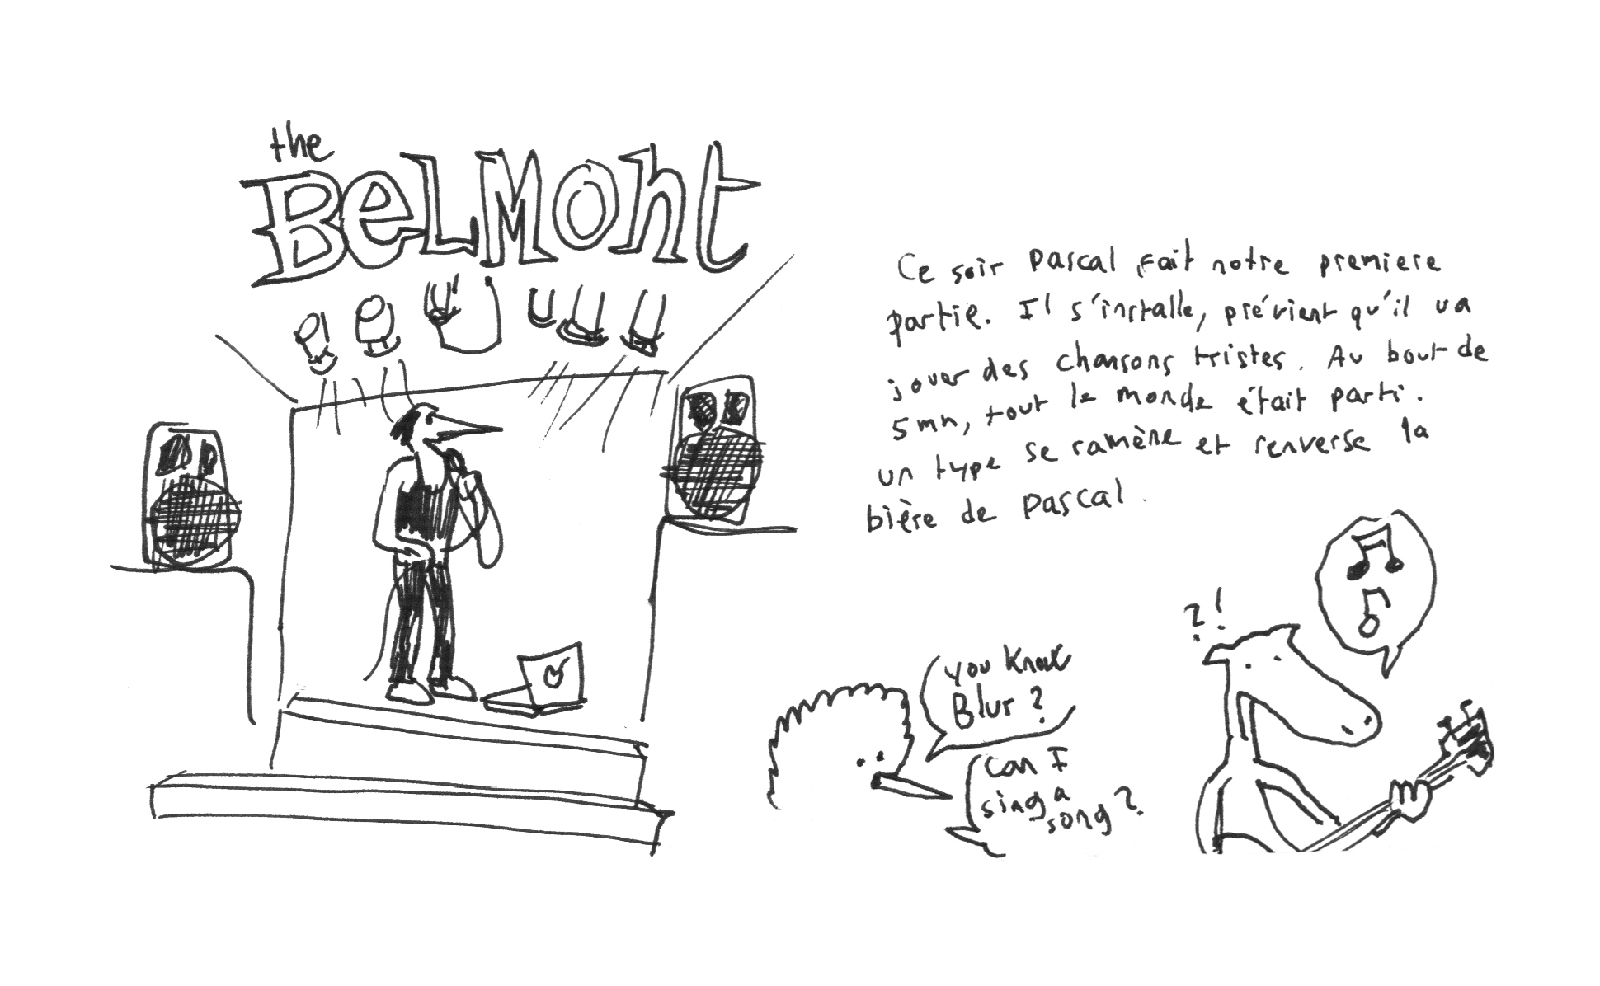 the
BeLMont
Ce soir Pascal fait notre premiere
partie. Il s'installe, prévient qu'il va
jouer des chansons tristes. Au bout de
5mn, tout le monde était parti.
un type se ramène et renverse la
bière de Pascal.
?!
you know
Blur?
Can I
sing a
song?